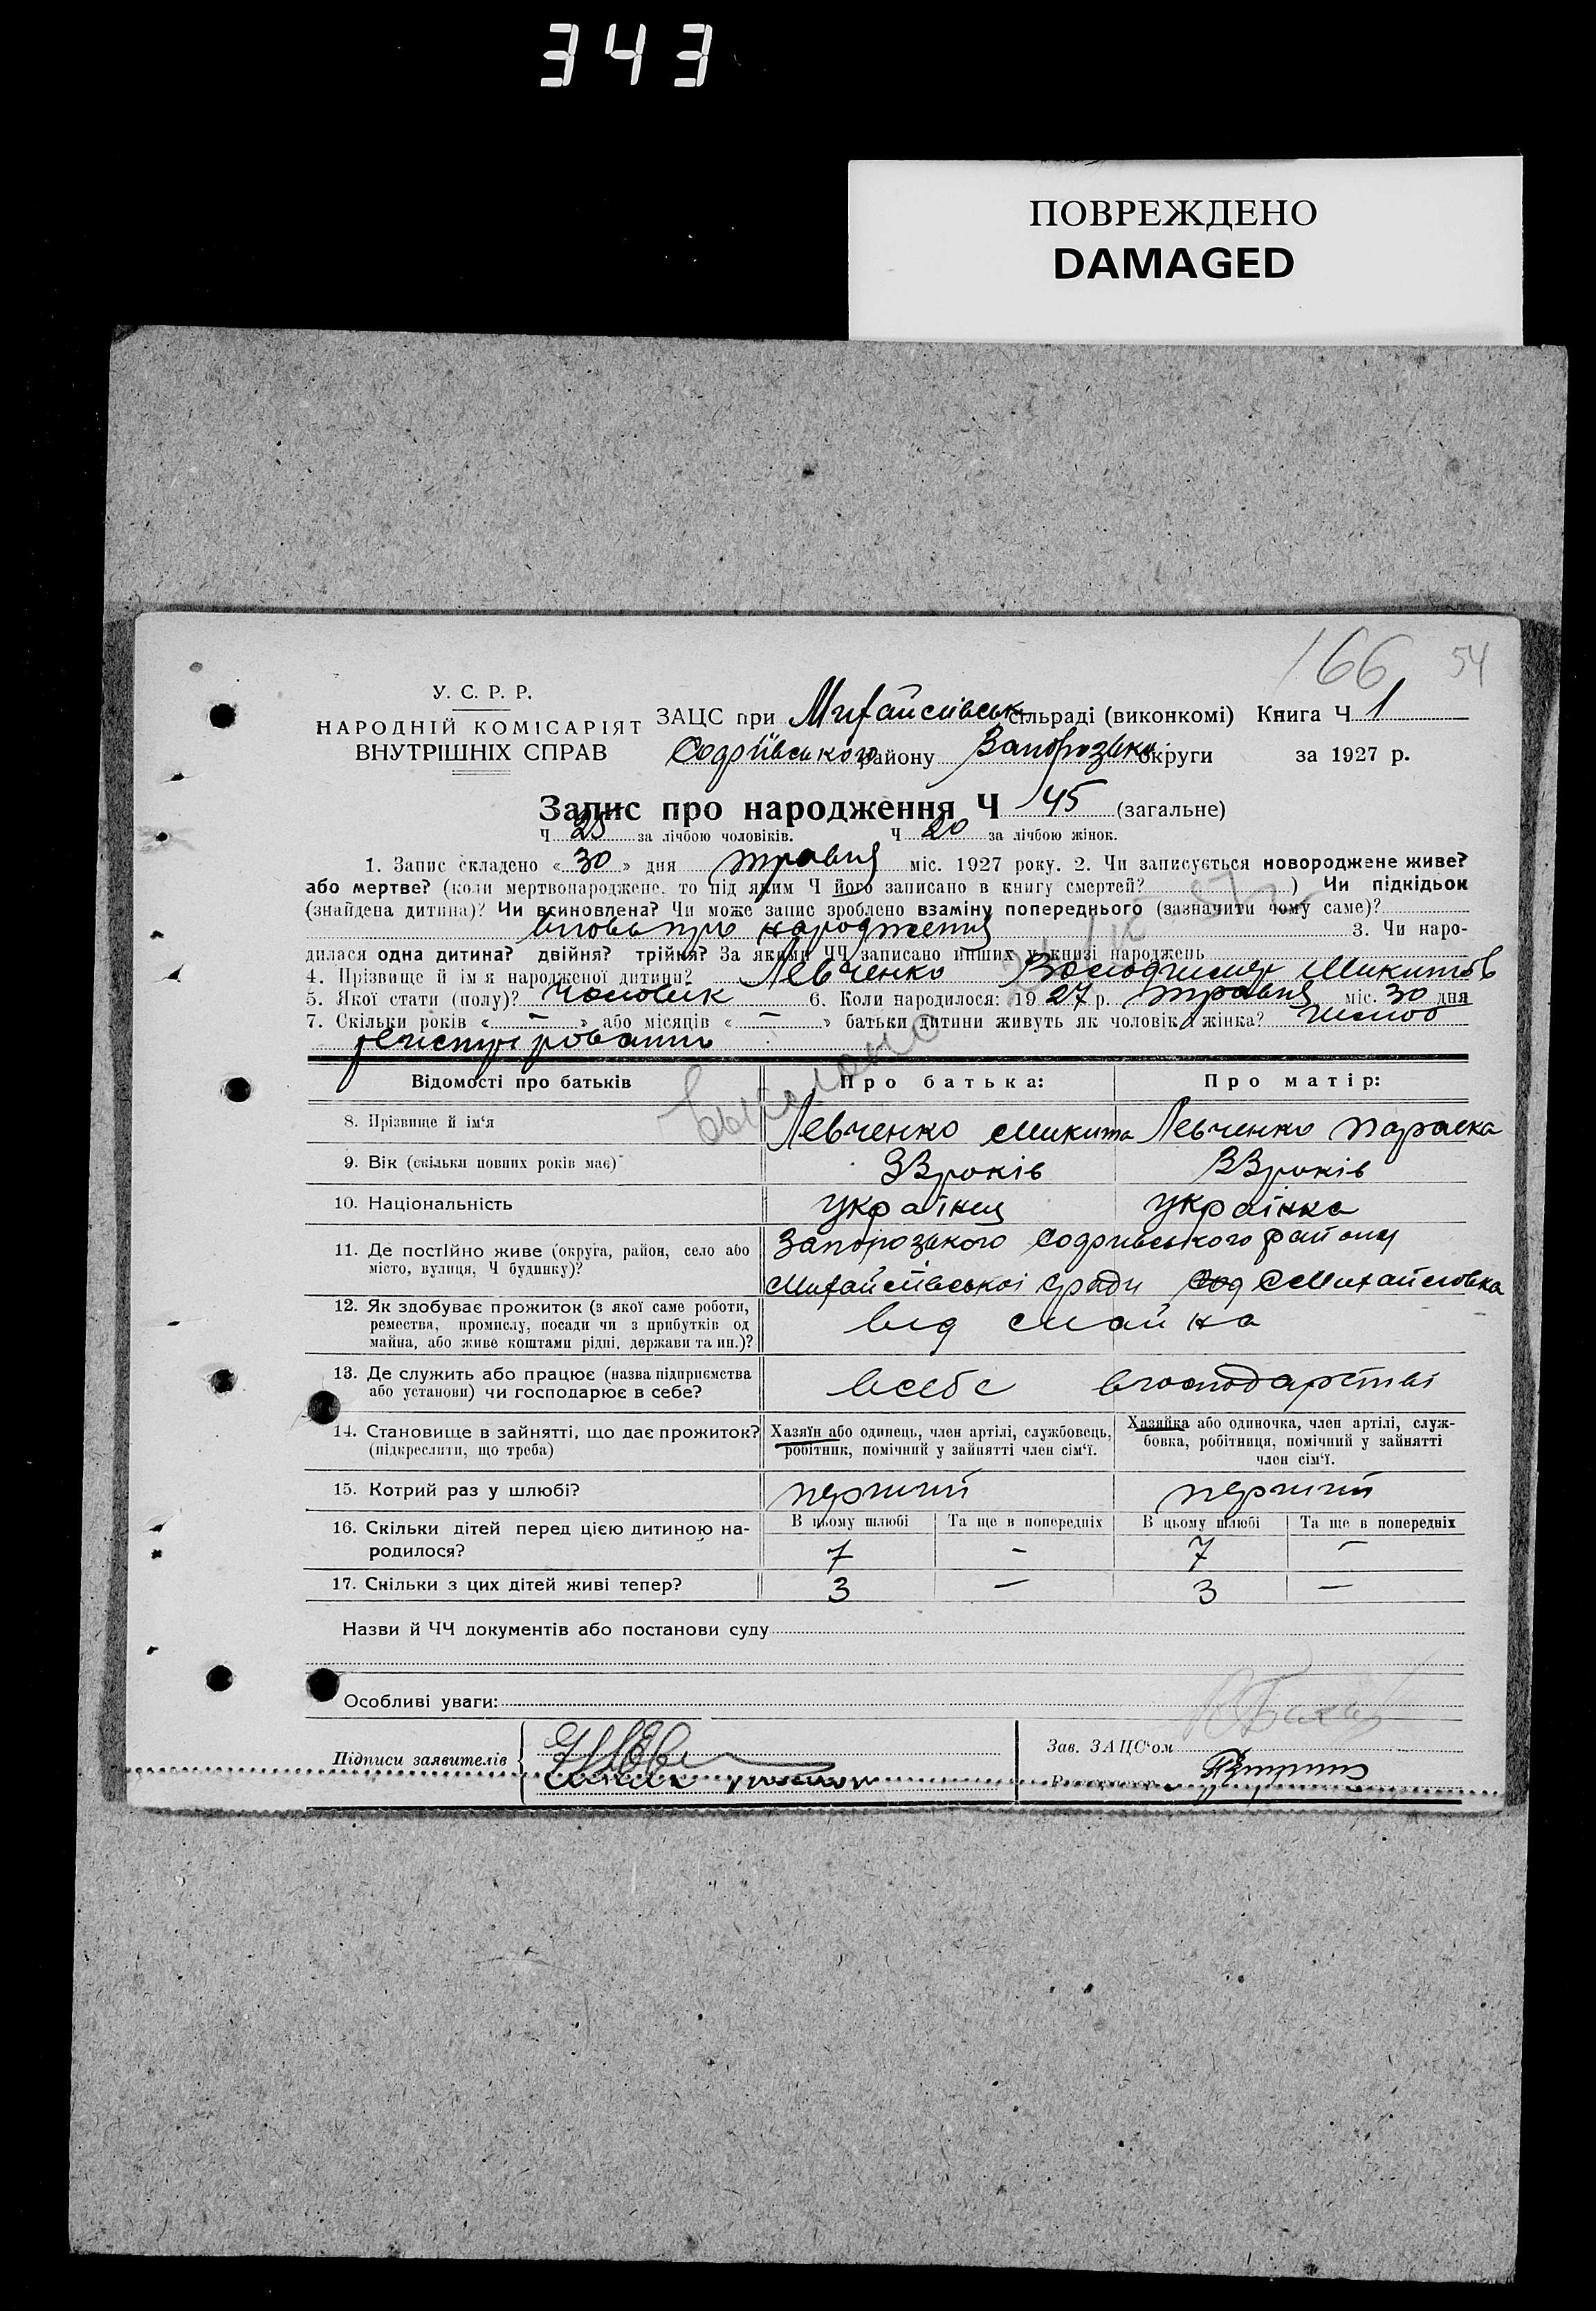 343
ПОВРЕЖДЕНО
DAMAGED
166 54
У. С. Р. Р.
НАРОДНІЙ КОМІСАРІЯТ
ВНУТРІШНІХ СПРАВ
ЗАЦС при Михайлівськ сільраді (виконкомі) Книга Ч 1
району Запорозька округи за 1927 р.
Запис про народження Ч 45 (загальне)
Ч 25 за лічбою чоловіків. Ч 20 за лічбою жінок.
1. Запис складено «30» дня травня міс. 1927 року. 2. Чи записується новороджене живе?
або мертве? (коли мертвонароджене, то під яким Ч його записано в книгу смертей?) Чи підкідьок
(знайдена дитина)? Чи всиновлена? Чи може запис зроблено взаміну попереднього (зазначити чому саме)?
вновь про народження 3. Чи наро-
дилася одна дитина? двійня? трійня? За якими ЧЧ записано инших у книзі народжень
4. Прізвище й ім я народженої дитини? Левченко Володимир Микитов
5. Якої стати (полу)? чоловік 6. Коли народилося: 1927 р. травня міс. 30 дня
7. Скільки років « – » або місяців « – » батьки дитини живуть як чоловік і жінка?
Відомості про батьків Про батька: Про матір:
8. Прізвище й ім‘я Левченко Микита Левченко Параска
9. Вік (скільки повних років має) 33 років 33 років
10. Національність українец українка
11. Де постійно живе (округа, район, село або
місто, вулиця, Ч будинку)?
Запорозького району
Михайлівської с Михайловка
12. Як здобуває прожиток (з якої саме роботи,
ремества, промислу, посади чи з прибутків од
майна, або живе коштами рідні, держави та ин.)?
від майна
13. Де служить або працює (назва підприємства
або установи) чи господарює в себе?
в себе в господарстві
14. Становище в зайнятті, що дає прожиток?
(підкреслити, що треба)
Хазяїн або одинець, член артілі, службовець,
робітник, помічний у зайнятті член сім‘ї.
Хазяйка або одиночка, член артілі, служ-
бовка, робітниця, помічний у зайнятті
член сім‘ї.
15. Котрий раз у шлюбі? перший перший
16. Скільки дітей перед цією дитиною на-
родилося?
В цьому шлюбі Та ще в попередніх В цьому шлюбі Та ще в попередніх
7 – 7 –
17. Скільки з цих дітей живі тепер? 3 – 3 –
Назви й ЧЧ документів або постанови суду
Особливі уваги:
Підписи заявителів
Зав. ЗАЦС‘ом